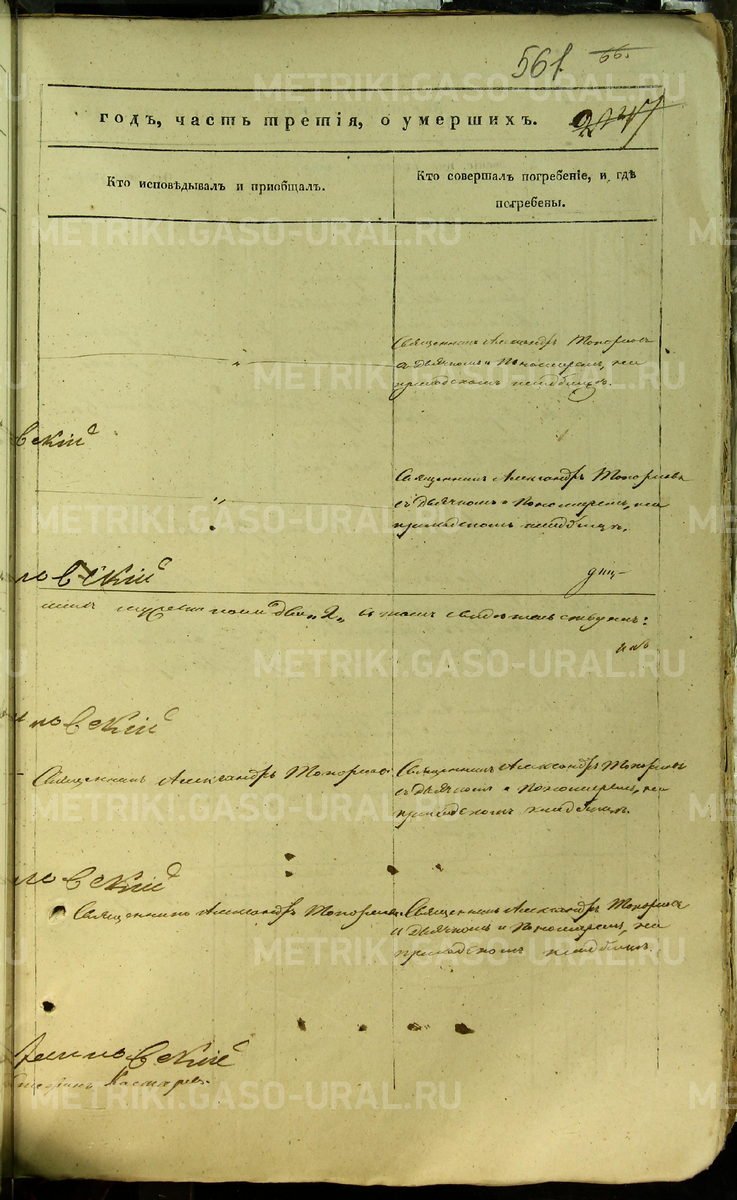 561.
66.
годъ, часть третія, о умершихъ.
Кто исповѣдывалъ и пріобщалъ.
Кто совершалъ погребеніе, и гдѣ
погребены.
METRIKI.GASO-URAL.RU
Священникъ Александръ Топорковъ
съ дьячкомъ и пономаремъ, на
приходскомъ кладбищѣ.
вскій
Священникъ Александръ Топорковъ
съ дьячкомъ и пономаремъ, на
приходскомъ кладбищѣ.
ловскій
два 2, въ томъ свидѣтельствуемъ:
вскій
Священникъ Александръ Топорковъ
Священникъ Александръ Топорковъ
съ дьячкомъ и пономаремъ, на
приходскомъ кладбищѣ.
ловскій
Священникъ Александръ Топорковъ
Священникъ Александръ Топорковъ
съ дьячкомъ и пономаремъ, на
приходскомъ кладбищѣ.
вскій